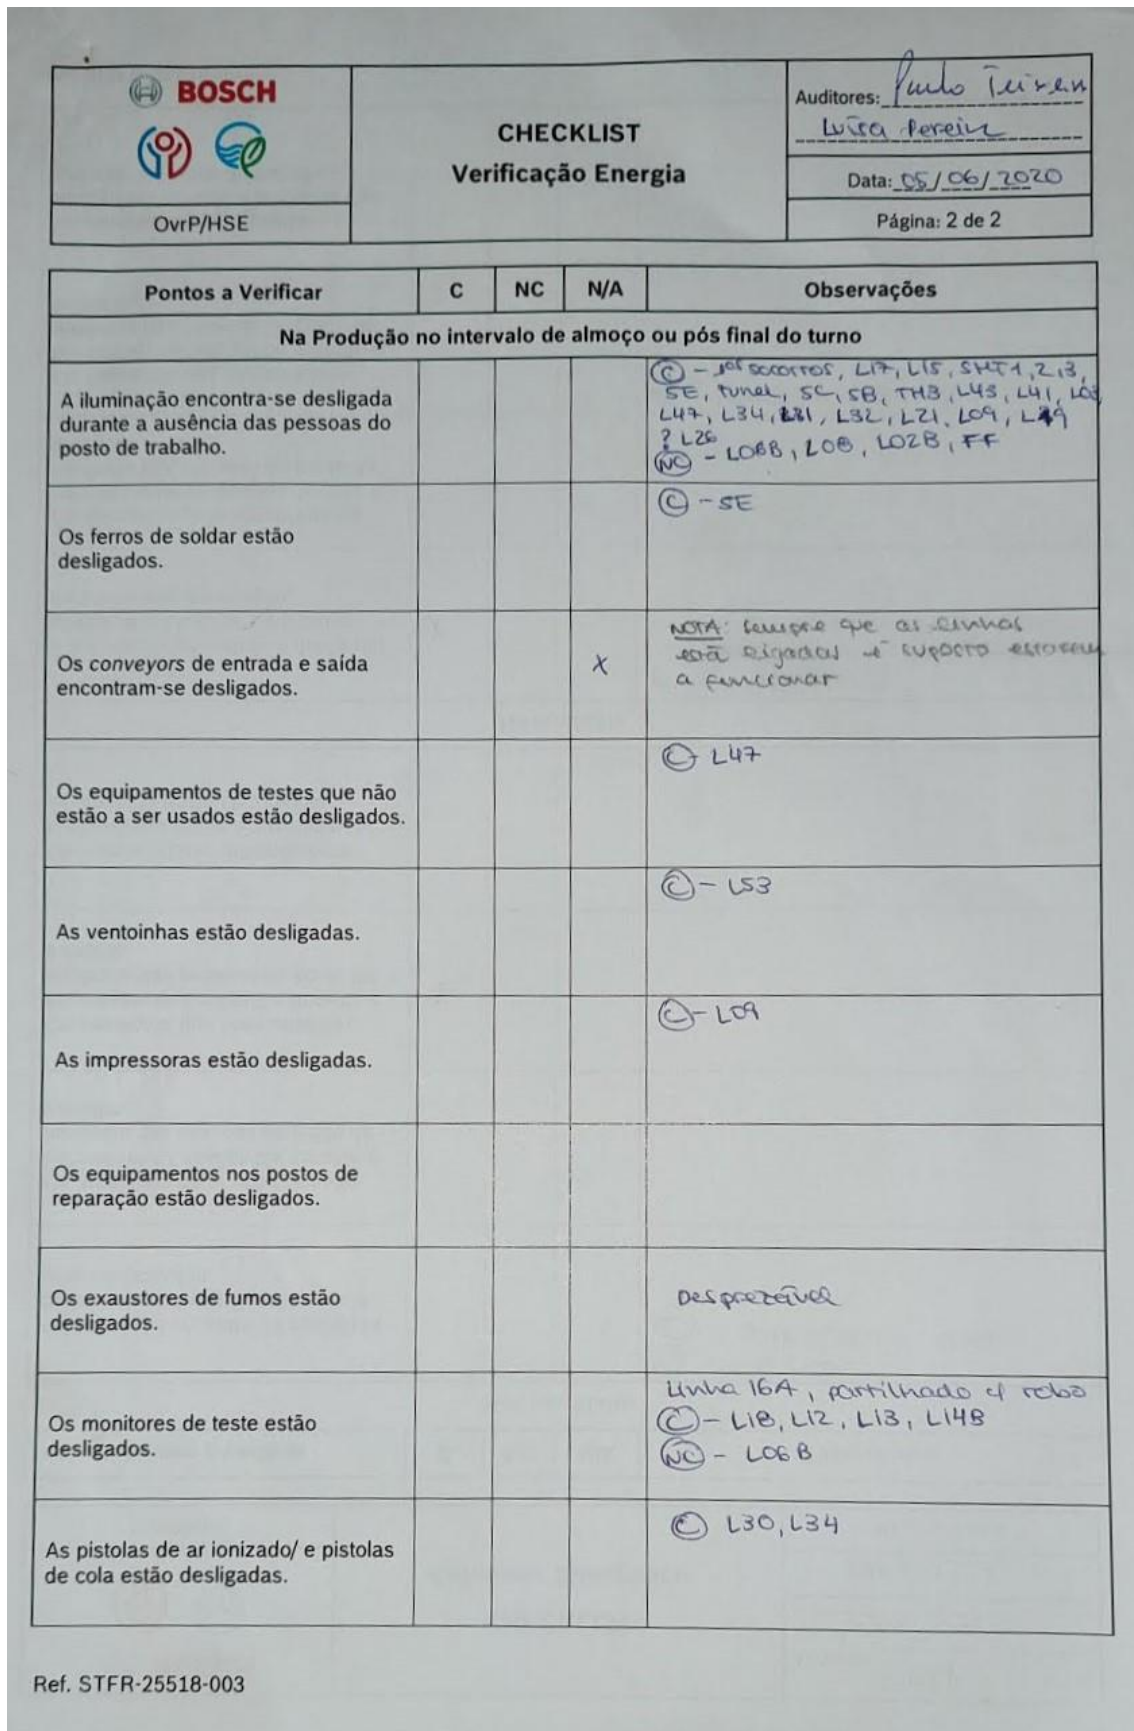 BOSCH
OvrP/HSE
CHECKLIST
Verificação Energia
Auditores: Paulo Teixeira
Luísa Pereira
Data: 05/06/2020
Página: 2 de 2
Pontos a Verificar C NC N/A Observações
Na Produção no intervalo de almoço ou pós final do turno
A iluminação encontra-se desligada
durante a ausência das pessoas do
posto de trabalho.
C - 1os socorros, L17, L15, SMT1,2,3,
SE, tunel, SC, SB, TH3, L43, L41, L03
L47, L34, L31, L32, L21, L09, L49
? L26
NC - L06B, L08, L02B, FF
Os ferros de soldar estão
desligados.
C - SE
Os conveyors de entrada e saída
encontram-se desligados.
X
NOTA: sempre que as linhas
estã ligadas é suposto estarem
a funcionar
Os equipamentos de testes que não
estão a ser usados estão desligados.
C L47
As ventoinhas estão desligadas.
C - L53
As impressoras estão desligadas.
C - L09
Os equipamentos nos postos de
reparação estão desligados.
Os exaustores de fumos estão
desligados.
Desprezável
Os monitores de teste estão
desligados.
Linha 16A, partilhado c/ robo
C - L18, L12, L13, L14B
NC - L06B
As pistolas de ar ionizado/ e pistolas
de cola estão desligadas.
C L30, L34
Ref. STFR-25518-003